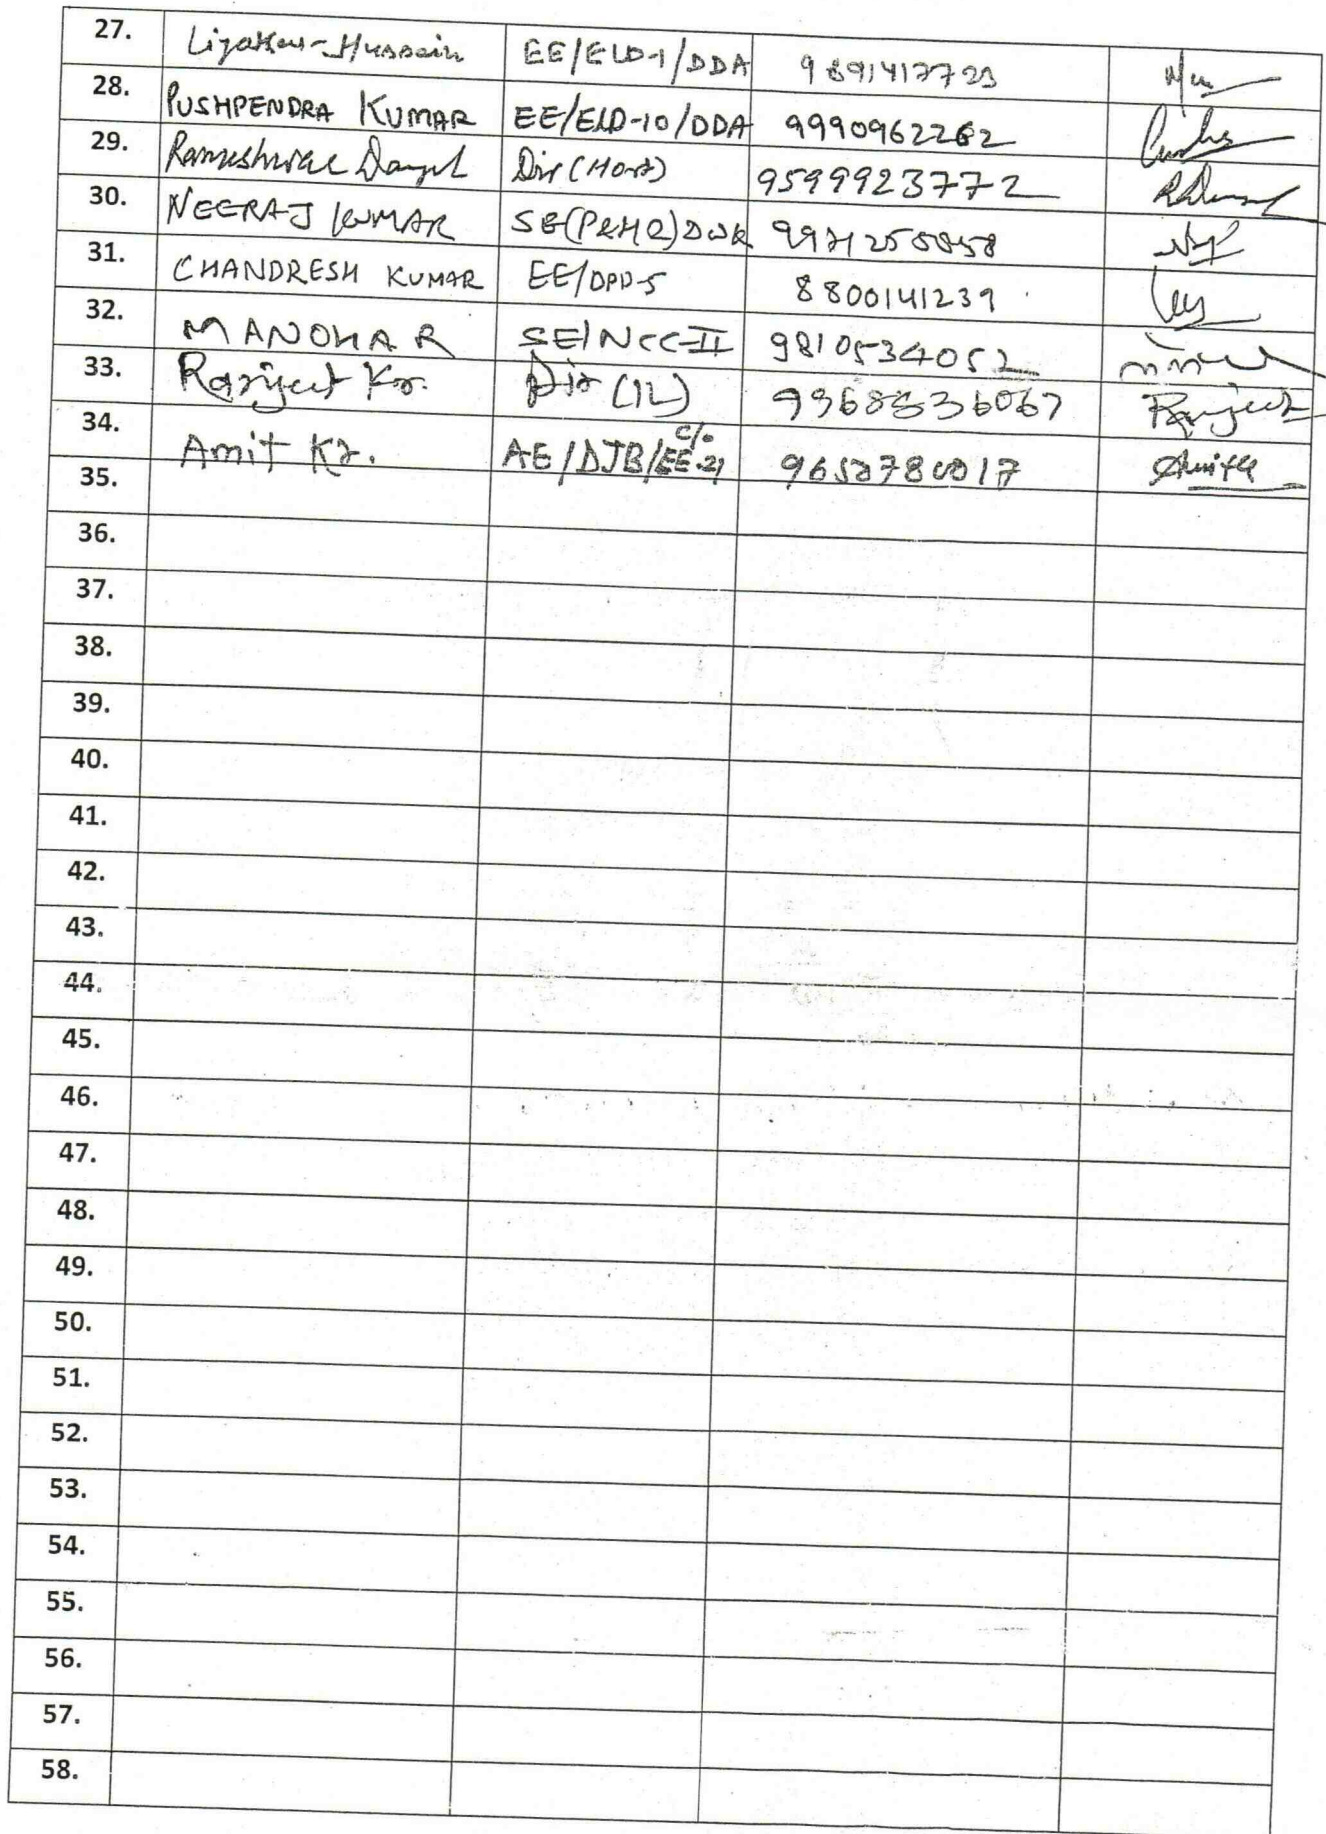 27. Liyakat-Hussain EE/ELD-1/DDA 9891417723
28. PUSHPENDRA KUMAR EE/ELD-10/DDA 9990962262
29. Rameshwar Dayal Dir (Hort) 9599923772
30. NEERAJ KUMAR SE(P&MR)DWK
31. CHANDRESH KUMAR EE/DPD-5 8800141239
32. MANOHAR SE/NCC-II 9810534052
33. Ranjeet Kr. Dir (IL) 9968536067 Ranjeet
34. Amit Kr. AE/DJB/C/o EE-21
35.
36.
37.
38.
39.
40.
41.
42.
43.
44.
45.
46.
47.
48.
49.
50.
51.
52.
53.
54.
55.
56.
57.
58.